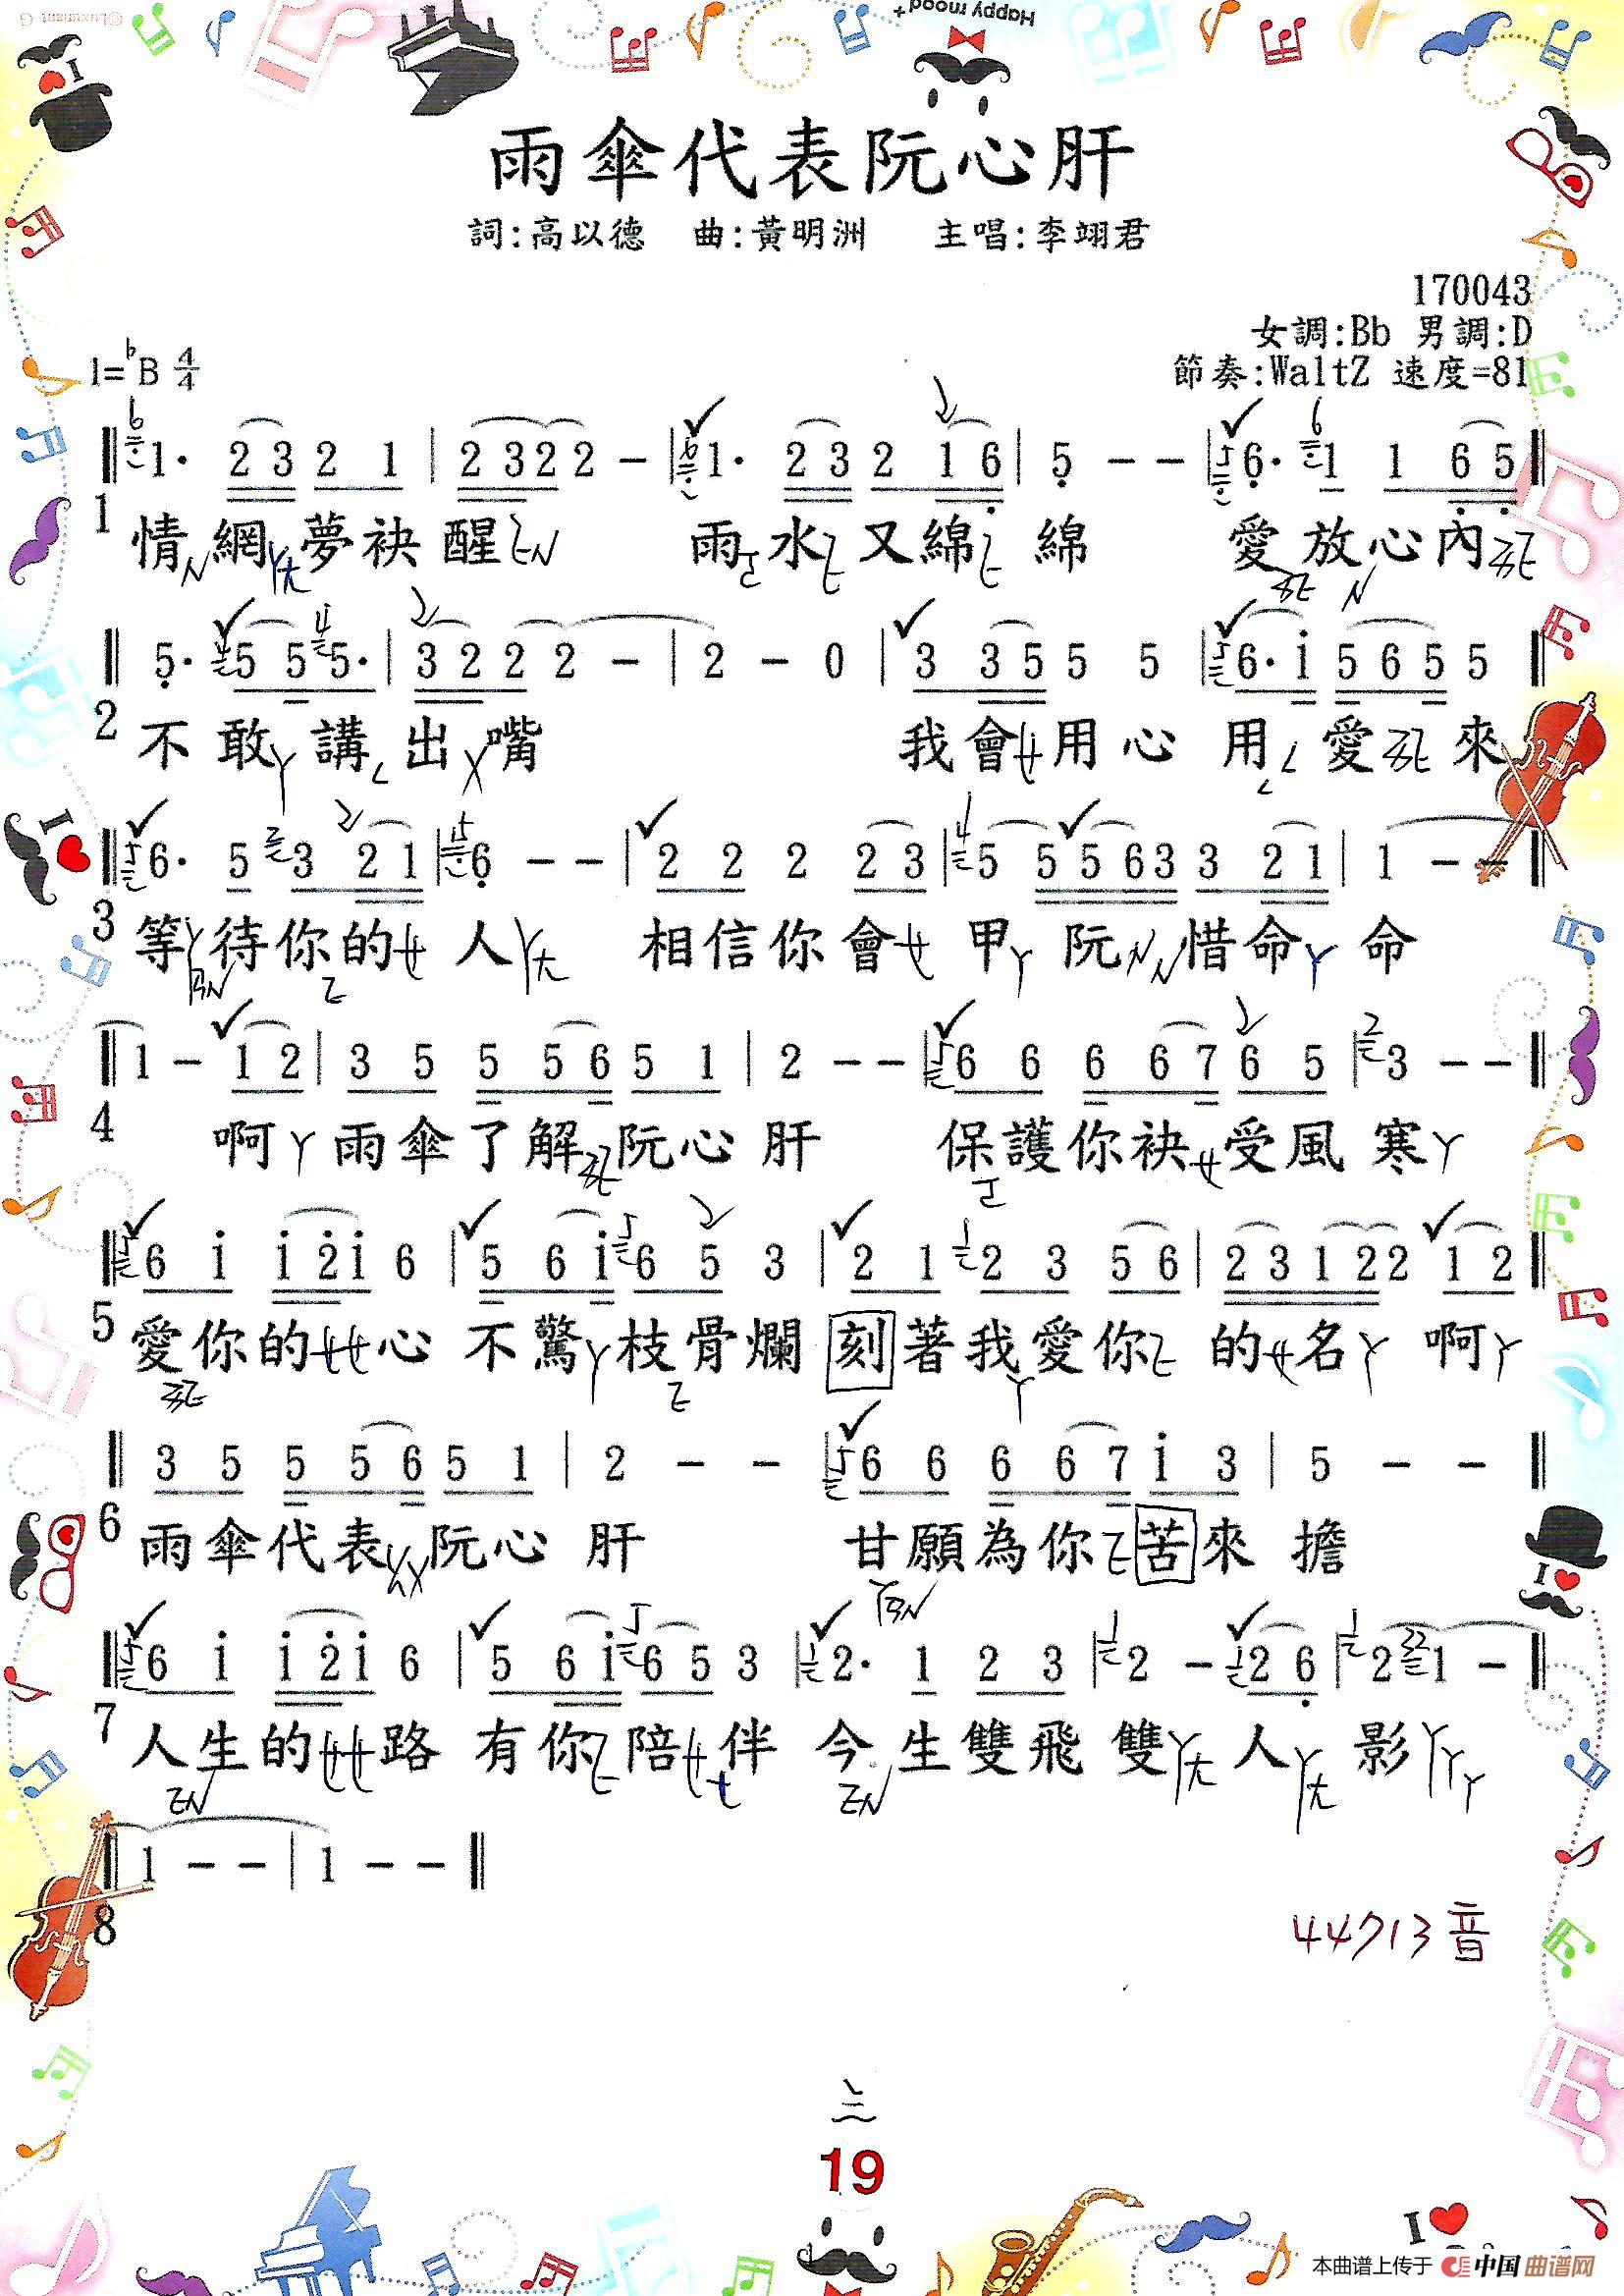 ©Luxuriant G
Happy mood+
I
雨傘代表阮心肝
詞:高以德 曲:黃明洲 主唱:李翊君
170043
女調:Bb 男調:D
1=♭B 4/4
節奏:WaltZ 速度=81
1· 2 3 2 1 | 2 3 2 2 - | 1· 2 3 2 1 6 | 5 - - | 6· 1 1 6 5
1 情網夢袂醒 雨水又綿綿 愛放心內
5· 5 5 5· | 3 2 2 2 - | 2 - 0 | 3 3 5 5 5 | 6· i 5 6 5 5
2 不敢講出嘴 我會用心用愛來
I
6· 5 3 2 1 | 6 - - | 2 2 2 2 3 | 5 5 5 6 3 3 2 1 | 1 - -
3 等待你的人 相信你會甲阮惜命命
1 - 1 2 | 3 5 5 5 6 5 1 | 2 - - | 6 6 6 6 7 6 5 | 3 - -
4 啊雨傘了解阮心肝 保護你袂受風寒
6 i i 2 i 6 | 5 6 i 6 5 3 | 2 1 2 3 5 6 | 2 3 1 2 2 1 2
5 愛你的心不驚枝骨爛刻著我愛你的名啊
3 5 5 5 6 5 1 | 2 - - | 6 6 6 6 7 i 3 | 5 - -
6 雨傘代表阮心肝 甘願為你苦來擔
I
6 i i 2 i 6 | 5 6 i 6 5 3 | 2· 1 2 3 | 2 - 2 6 | 2 1 -
7 人生的路有你陪伴今生雙飛雙人影
1 - - | 1 - -
8
44713音
19
I
本曲谱上传于 中国曲谱网